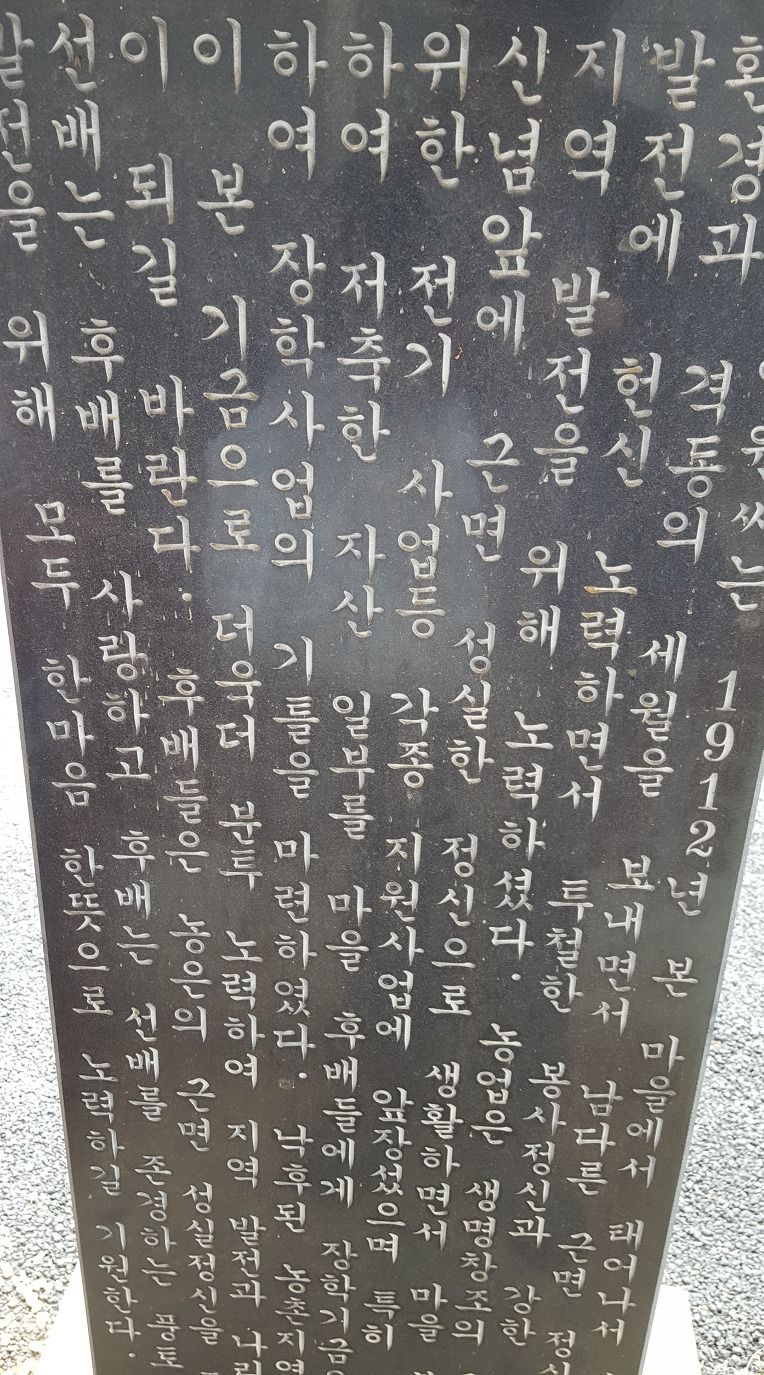 원씨는 1912년 본 마을에서 태어나서
환경과 격동의 세월을 보내면서 남다른 근면
발전에 헌신 노력하면서 투철한 봉사정신과 강한
지역 발전을 위해 노력하셨다. 농업은 생명창조의
신념앞에 근면 성실한 정신으로 생활하면서 마을
위한 전기 사업등 각종 지원사업에 앞장섰으며 특히
하여 저축한 자산 일부를 마을 후배들에게 장학기금
하여 장학사업의 기틀을 마련하였다. 낙후된 농촌지역
이 본 기금으로 더욱더 분투 노력하여 지역 발전과
이 되길 바란다. 후배들은 농은의 근면 성실정신을
선배는 후배를 사랑하고 후배는 선배를 존경하는 풍토
발전을 위해 모두 한마음 한뜻으로 노력하길 기원한다.